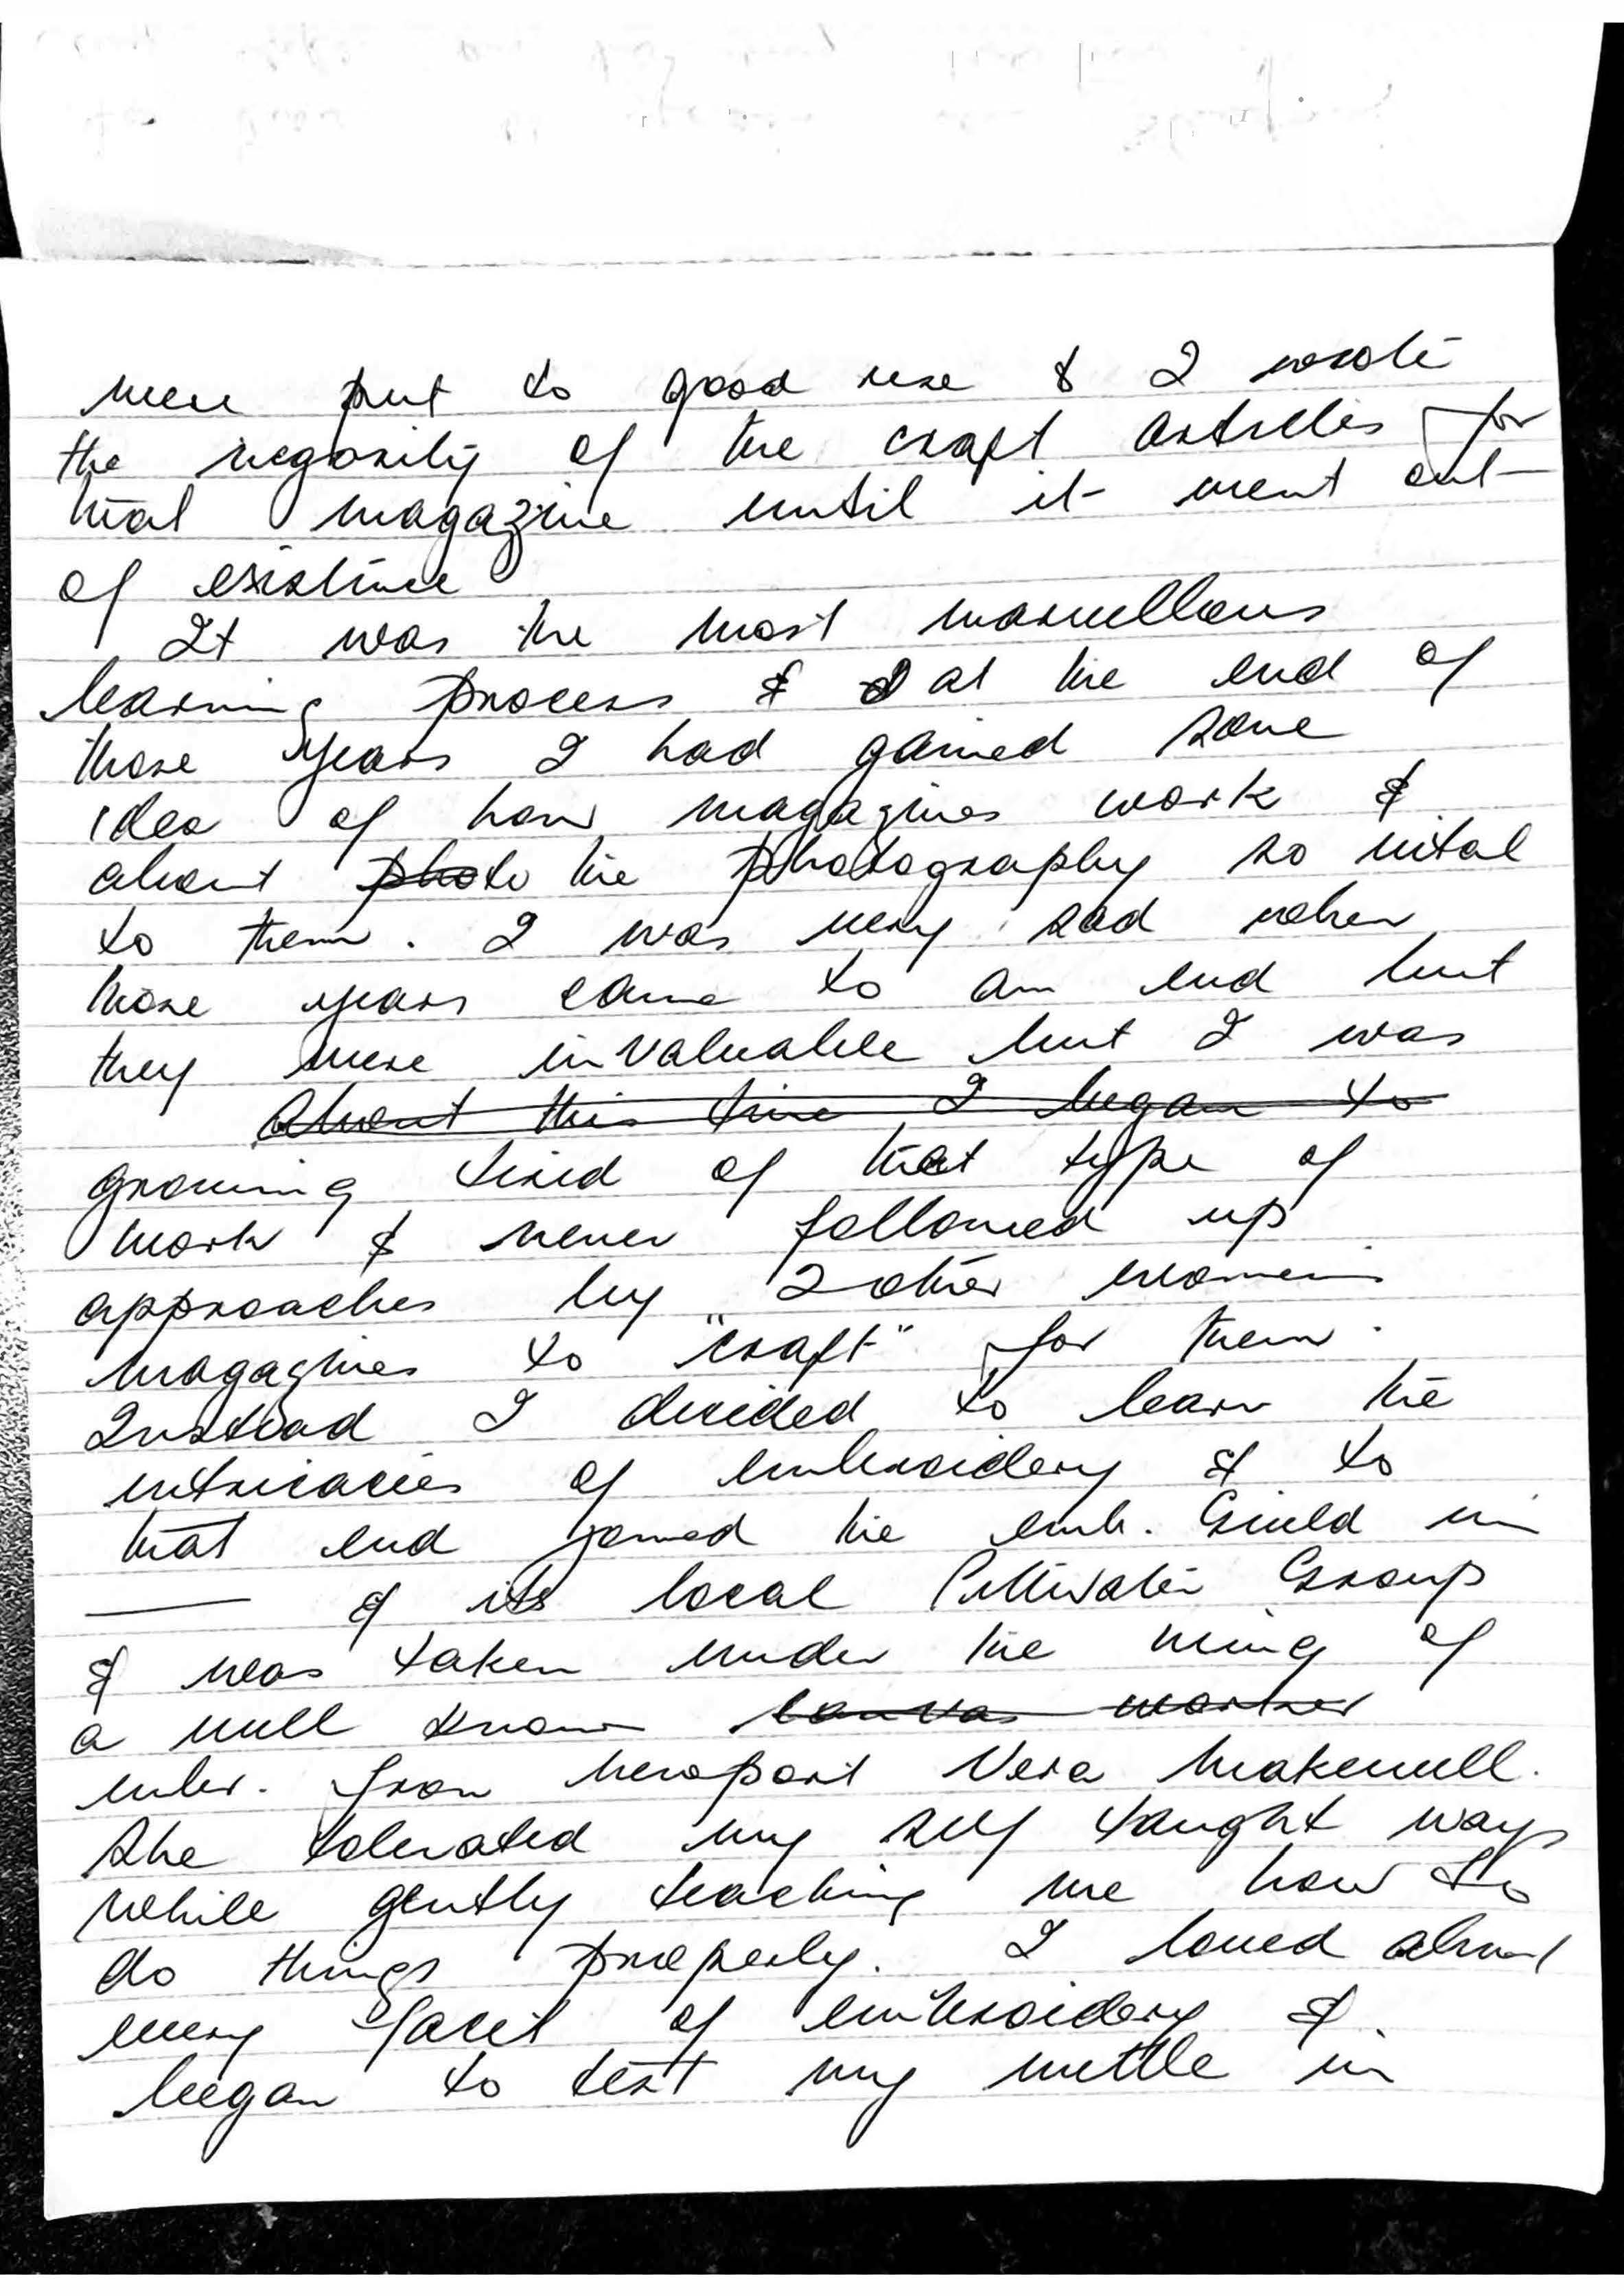 were put to good use & I wrote
the majority of the craft articles for
that magazine until it went out
of existence
It was the most marvellous
learning process & at the end of
those years I had gained some
idea of how magazines work &
about photo the photography so vital
to them. I was very sad when
those years came to an end but
they were invaluable but I was
About this time I began to
growing tired of that type of
work & never followed up
approaches by 2 other womens
magazines to "craft" for them.
Instead I decided to learn the
intricacies of embroidery & to
that end joined the emb. Guild in
—— & its local Pittwater Group
& was taken under the wing of
a well known canvas worker
mber. from Newport Vera Makewell.
She tolerated my self taught ways
while gently teaching me how to
do things properly. I loved almost
every facet of embroidery &
began to test my mettle in